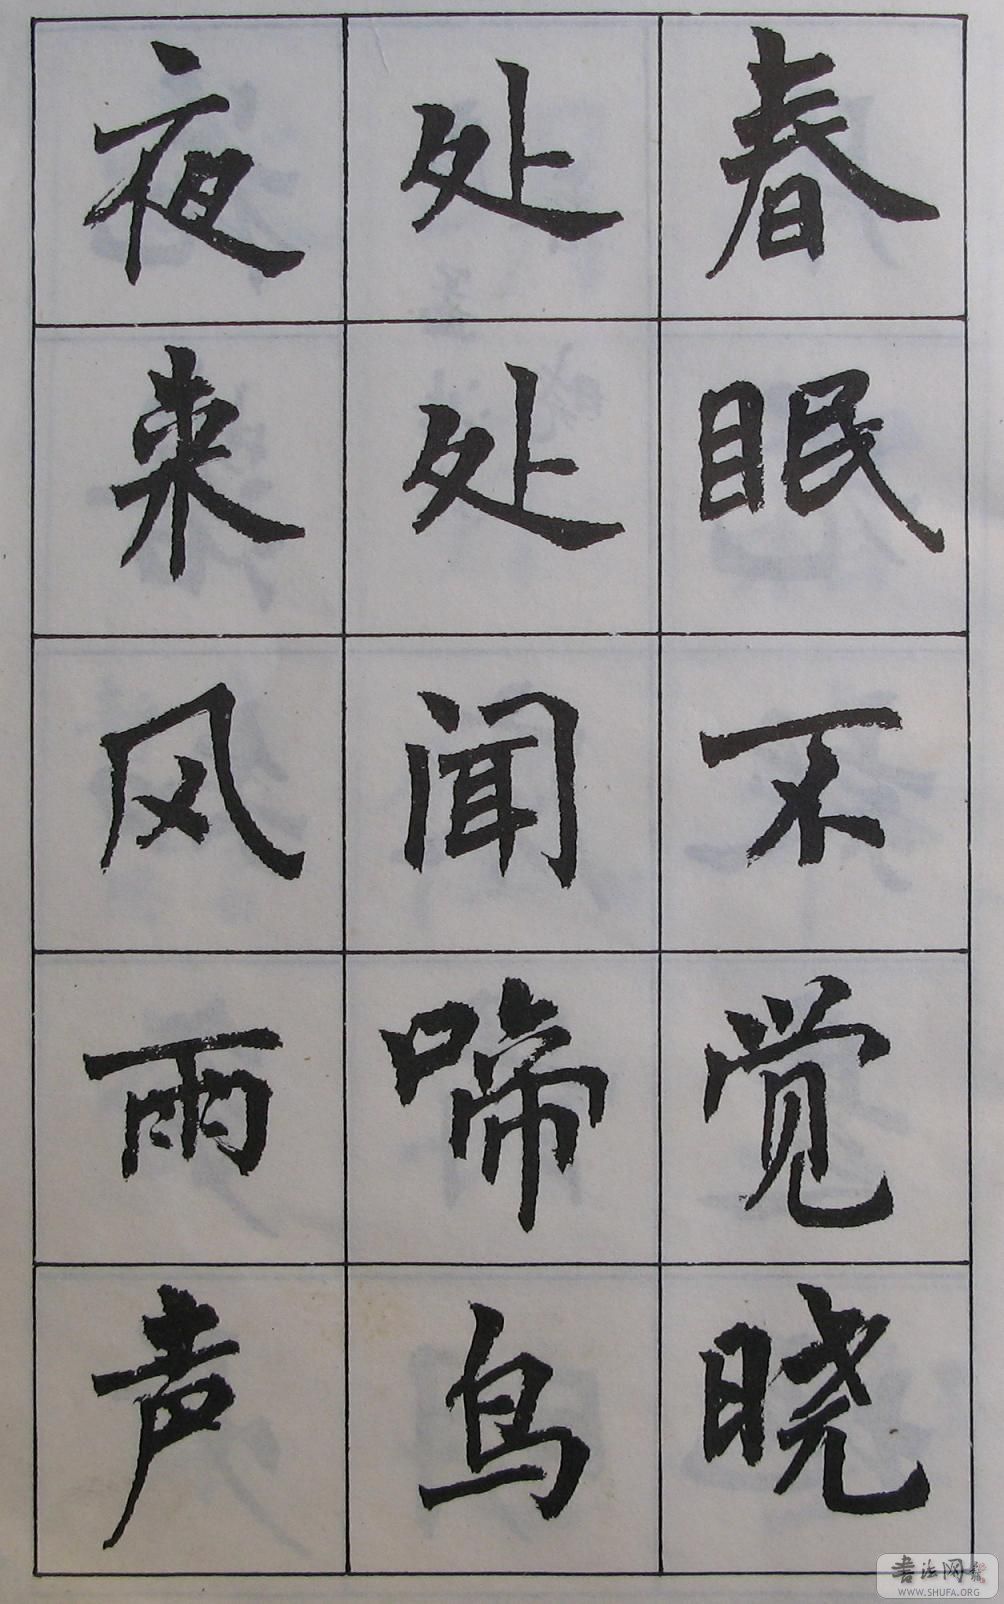 春眠不觉晓
处处闻啼鸟
夜来风雨声
书法网
WWW.SHUFA.ORG